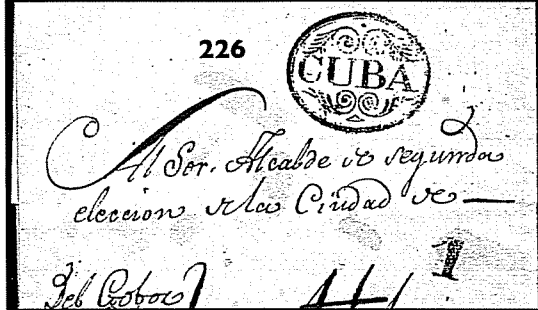 226
CUBA
Al Sor. Alcalde de segunda
eleccion de la Ciudad de —
1
Del Gobor